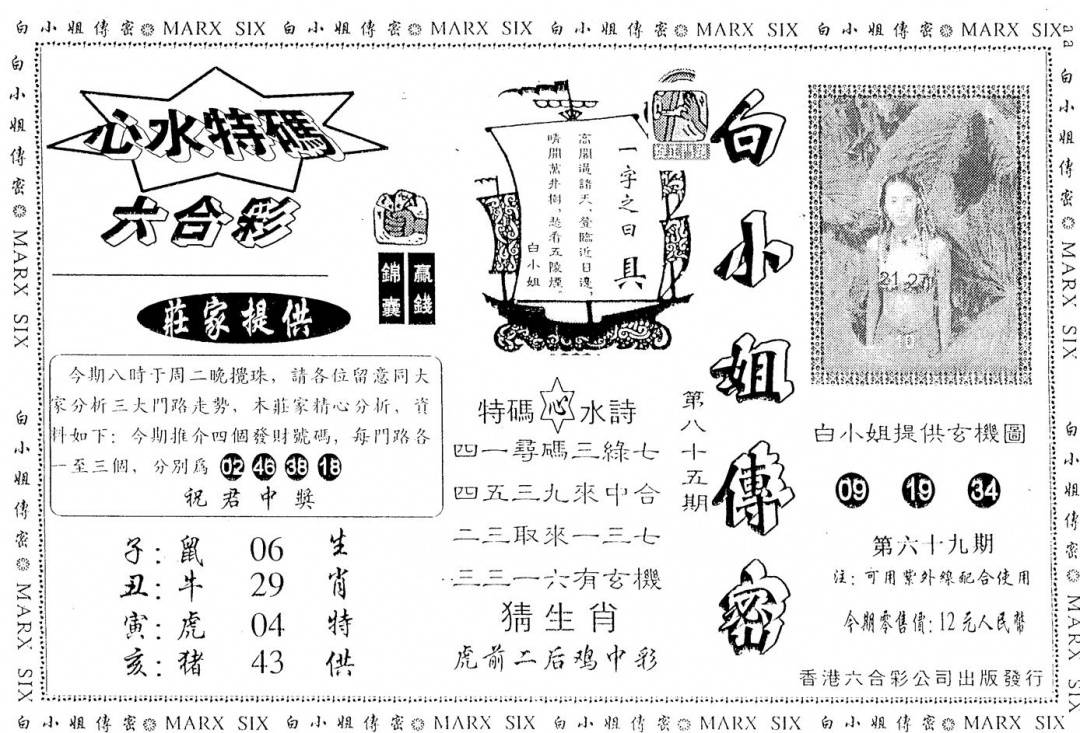 白小姐傳密 MARX SIX 白小姐傳密 MARX SIX 白小姐傳密 MARX SIX 白小姐傳密 MARX SIX
白小姐傳密 MARX SIX 白小姐傳密 MARX SIX
心水特碼
六合彩
錦囊
贏錢
莊家提供
今期八時于周二晚攪珠，請各位留意同大
家分析三大門路走勢，本莊家精心分析，資
料如下：今期推介四個發財號碼，每門路各
一至三個，分別爲 02 46 38 18
祝君中獎
子：鼠 06
丑：牛 29
寅：虎 04
亥：猪 43
生肖特供
一字之曰 具
高閣逼諸天，登臨近日邊，
晴開萬井樹，愁看五陵煙。
白小姐
特碼心水詩
四一尋碼三綠七
四五三九來中合
二三取來一三七
三三一六有玄機
猜生肖
虎前二后鸡中彩
第八十五期
白小姐傳密
21 27
10
白小姐提供玄機圖
09 19 34
第六十九期
注：可用紫外線配合使用
今期零售價：12元人民幣
香港六合彩公司出版發行
aa 白小姐傳密 MARX SIX 白小姐傳密 MARX SIX
白小姐傳密 MARX SIX 白小姐傳密 MARX SIX 白小姐傳密 MARX SIX 白小姐傳密 MARX SIX